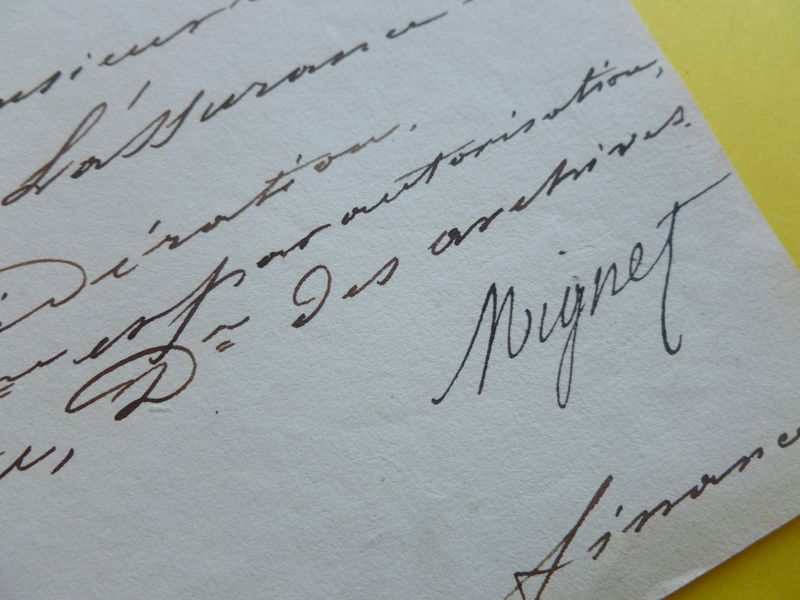 L'assurance
dération.
et par autorisation,
Dr des archives.
Mignet
finance